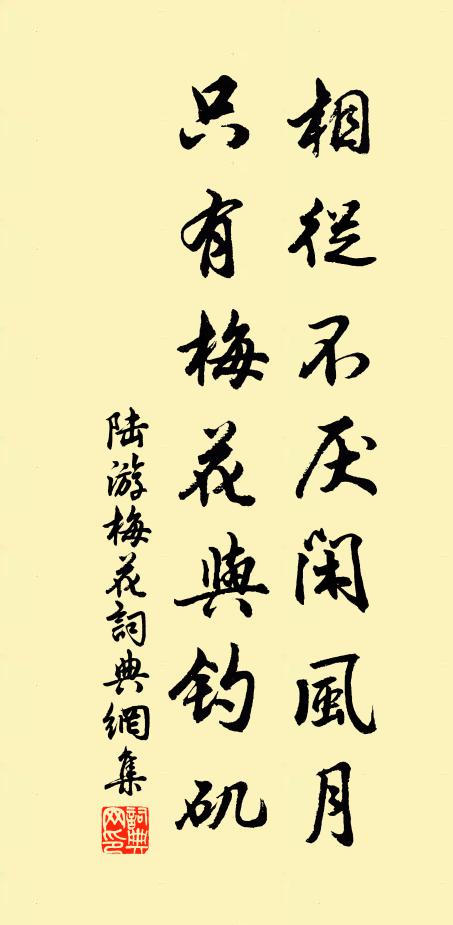 相從不厌閑風月
只有梅花與釣矶
陆游梅花詞典網集
詞典网印